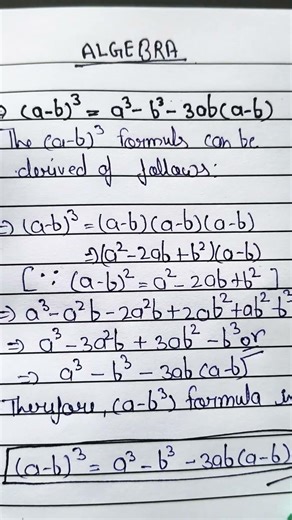 ALGEBRA
⇒ (a-b)³ = a³-b³-3ab(a-b)
The (a-b)³ formula can be
derived of follows:
⇒ (a-b)³ = (a-b)(a-b)(a-b)
⇒ (a²-2ab+b²)(a-b)
[∵ (a-b)² = a²-2ab+b²]
⇒ a³-a²b-2a²b+2ab²+ab²-b³
⇒ a³-3a²b+3ab²-b³ or
⇒ a³-b³-3ab(a-b)
Therefare, (a-b³) formula
(a-b)³ = a³-b³-3ab(a-b)